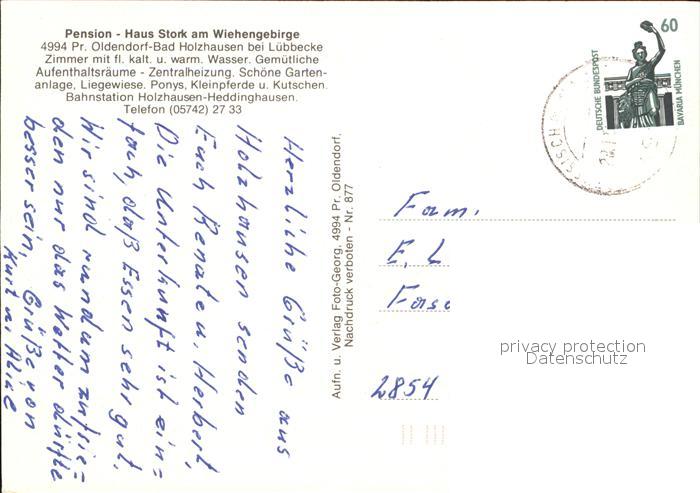 Pension - Haus Stork am Wiehengebirge
4994 Pr. Oldendorf-Bad Holzhausen bei Lübbecke
Zimmer mit fl. kalt. u. warm. Wasser. Gemütliche
Aufenthaltsräume - Zentralheizung. Schöne Garten-
anlage, Liegewiese. Ponys, Kleinpferde u. Kutschen.
Bahnstation Holzhausen-Heddinghausen.
Telefon (05742) 27 33
Herzliche Grüße aus
Holzhausen senden
Euch Renate u. Herbert,
Die Unterkunft ist ein=
fach, daß Essen sehr gut.
Wir sind rundum zufrie=
den nur das Wetter dürfte
besser sein, Grüße von
Kurt u. Alice
Aufn. u. Verlag Foto-Georg, 4994 Pr. Oldendorf,
Nachdruck verboten - Nr. 877
60
DEUTSCHE BUNDESPOST
BAVARIA MÜNCHEN
Fam.
E. L
2854
privacy protection
Datenschutz